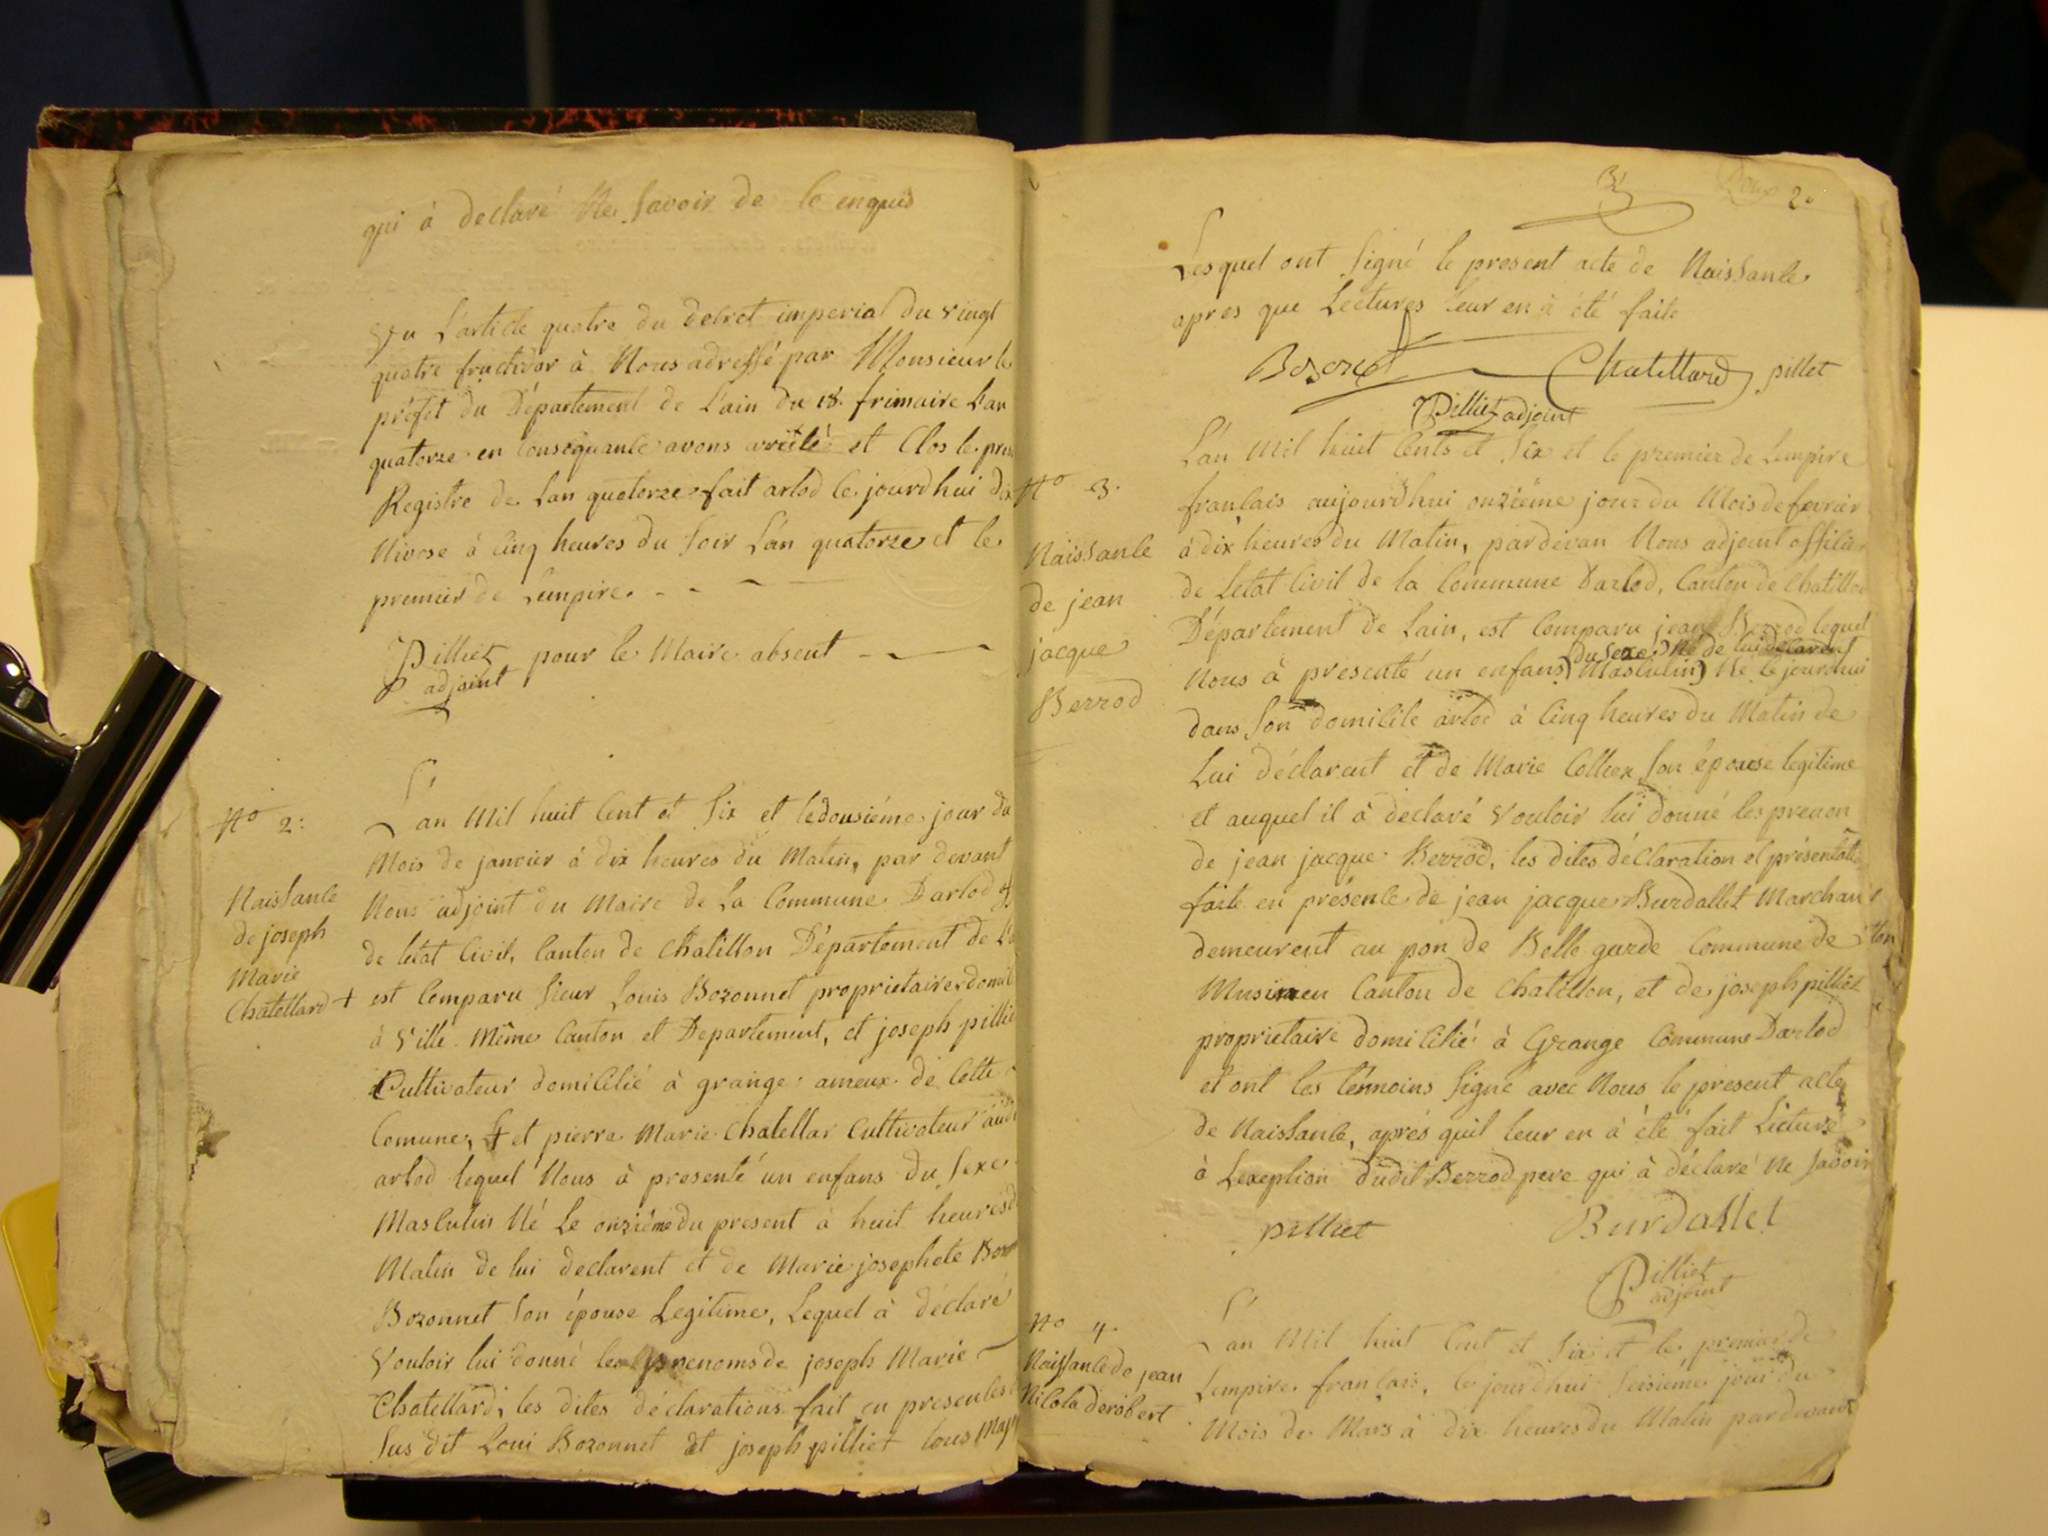 qui à declaré Ne Savoir de le enquis
Vu L'article quatre du decret imperial du vingt
quatre fructidor à Nous adressé par Monsieur le
préfet du Département de L'ain du 18. frimaire L'an
quatorze en Consequance avons arrêté et Clos le
Registre de Lan quatorze fait arlod le jourdhui dix
Nivose à Cinq heures du Soir L'an quatorze et le
premier de Lempire.
Pilliet pour le Maire absent
adjoint
No 2:
Naissance
de joseph
Marie
Chatellard +
L'an Mil huit Cent et Six et le dousiéme jour du
Mois de janvier à dix heures du Matin, par devant
Nous adjoint du Maire de La Commune Darlod
de létat Civil, Canton de Chatillon Département de
est Comparu Sieur Louis Bozonnet proprietaire
à Ville Même Canton et Département, et joseph
Cultivateur domicilié à grange ameux de Cette
Comune, + et pierre Marie Chatellar Cultivateur
arlod lequel Nous à presenté un enfans du Sexe
Masculin Né Le onziéme du present à huit heures
Matin de lui declarent et de Marie josephete
Bozonnet Son épouse Legitime, Lequel à déclaré
Vouloir lui donné les prenoms de joseph Marie
Chatellard, les dites déclarations fait en presence
Sus dit Loui Bozonnet et joseph pilliet tous
2.
Lesquel ont Signé le present acte de Naissance
apres que Lectures leur en à été faite
Chatellard pillet
Pilliet adjoint
No 3.
Naissance
de jean
jacque
Berrod
L'an Mil huit Cents et Six et le premier de Lempire
français aujourdhui onziéme jour du Mois de fevrier
à dix heures du Matin, pardevan Nous adjoint officier
de Letat Civil de la Commune Darlod, Canton de Chatillon
Département de Lain, est Comparu jean Berrod lequel
du Sexe Né de lui déclarent
Nous à presenté un enfans (Masculin) Né le jourdhui
dans Son domicile arlod à Cinq heures du Matin de
Lui déclarent et de Marie Son épouse legitime
et auquel il à declaré Vouloir lui donné les prenon
de jean jacque Berrod, les dites déclaration et
faite en présence de jean jacque Burdallet Marchan
demeurent au pon de Belle garde Commune de
Musinen Canton de Chatillon, et de joseph pilliet
proprietaire domicilié à Grange Commune Darlod
et ont les témoins Signé avec Nous le present acte
de Naissance, aprés quil leur en à été fait Lecture
à Lexeption dudit Berrod pere qui à déclaré Ne Savoir
pilliet Burdallet
Pilliet
adjoint
No 4.
Naissance de jean
Nicola derobert
L'an Mil huit Cent et Six et le premier de
Lempire français, le jourdhui Seisieme jour du
Mois de Mars à dix heures du Matin pardevant